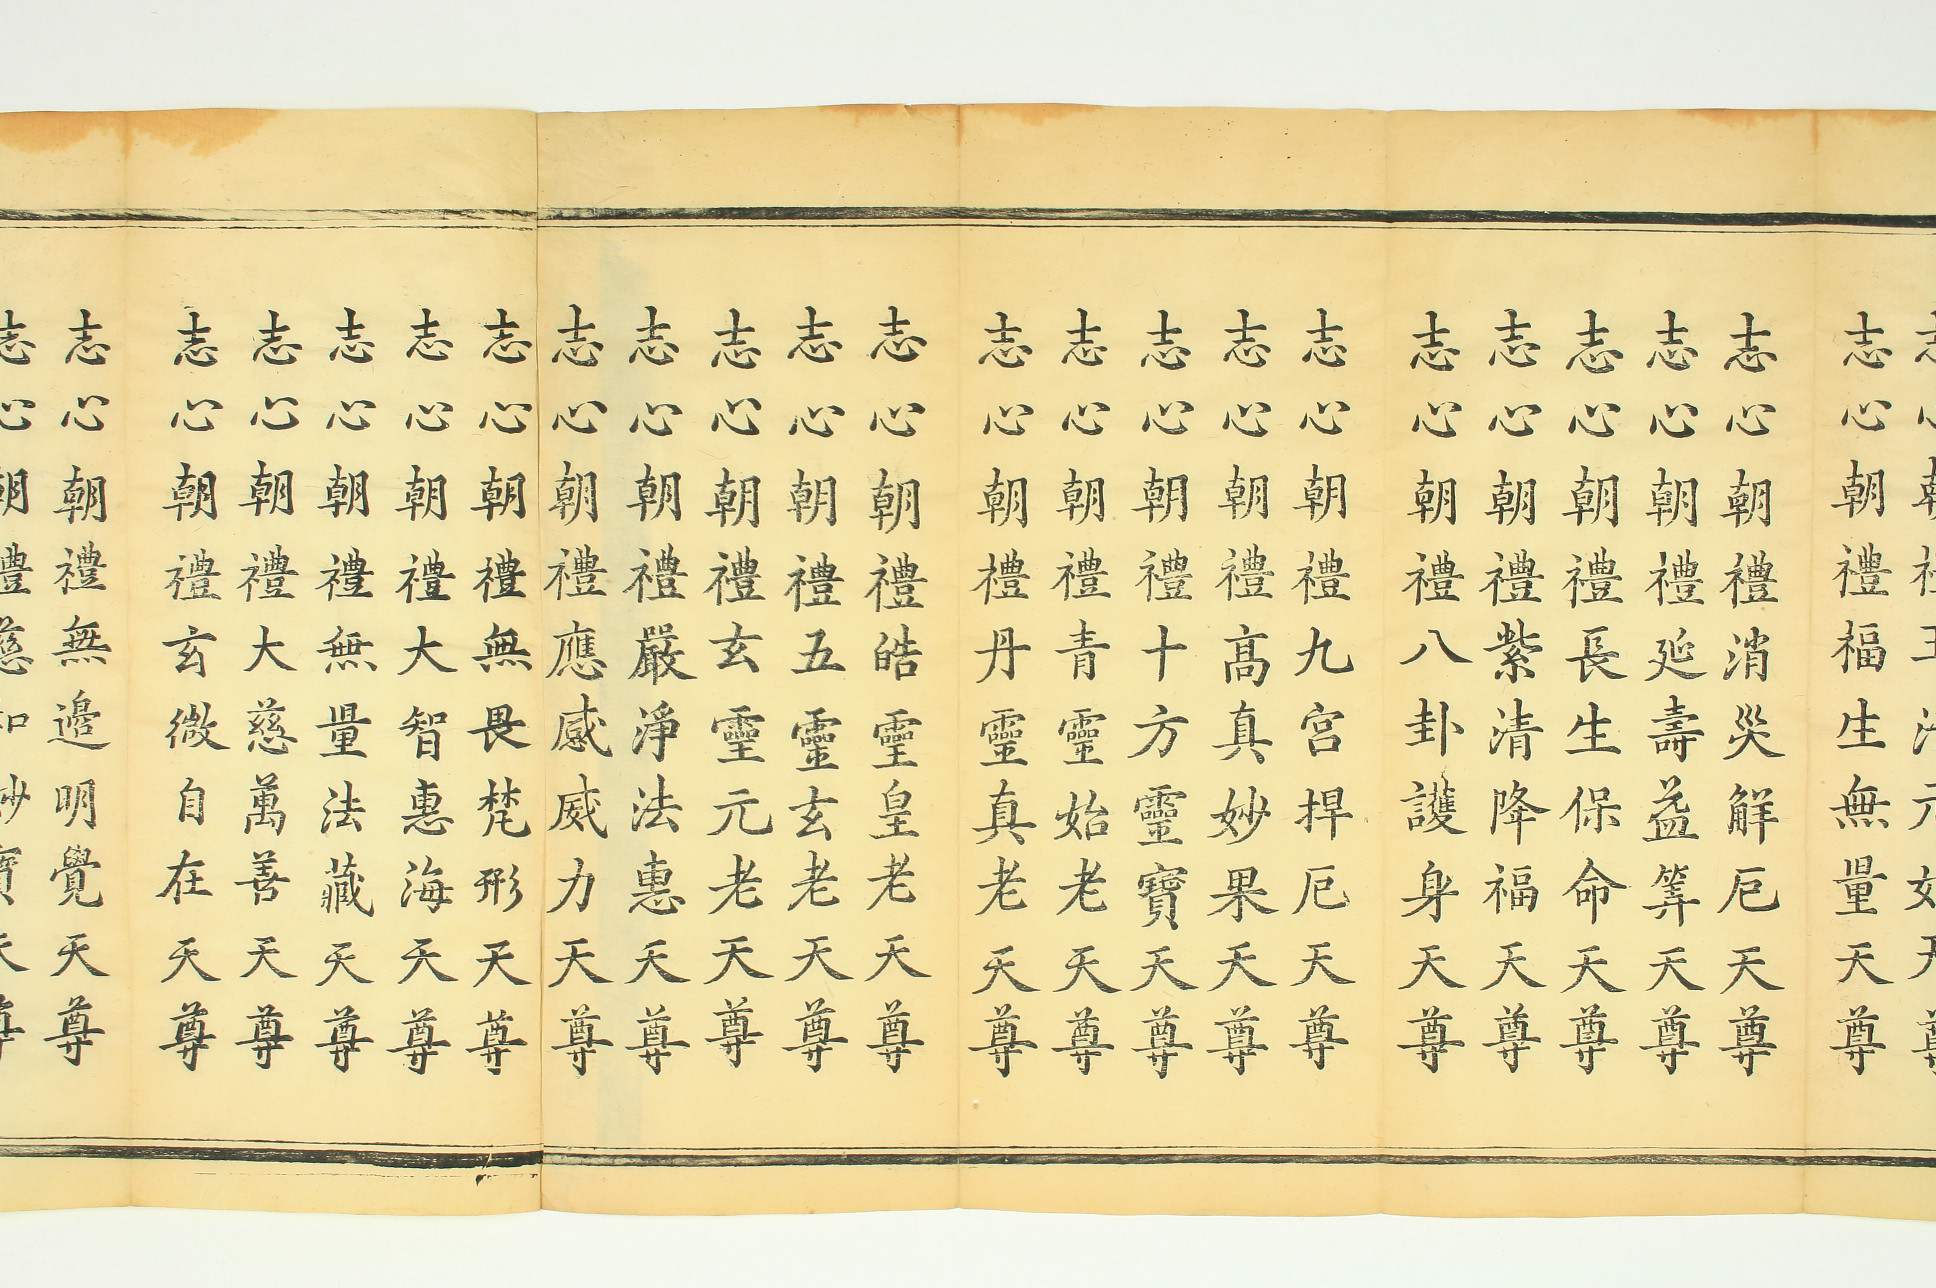 志心朝禮福生無量天尊
志心朝禮消災解厄天尊
志心朝禮延壽益筭天尊
志心朝禮長生保命天尊
志心朝禮紫清降福天尊
志心朝禮八卦護身天尊
志心朝禮九宮捍厄天尊
志心朝禮髙真妙果天尊
志心朝禮十方靈寶天尊
志心朝禮青靈始老天尊
志心朝禮丹靈真老天尊
志心朝禮皓靈皇老天尊
志心朝禮五靈玄老天尊
志心朝禮玄靈元老天尊
志心朝禮嚴淨法惠天尊
志心朝禮應感威力天尊
志心朝禮無畏梵形天尊
志心朝禮大智惠海天尊
志心朝禮無量法藏天尊
志心朝禮大慈萬善天尊
志心朝禮玄微自在天尊
志心朝禮無邊明覺天尊
志心朝禮慈和妙寶天尊